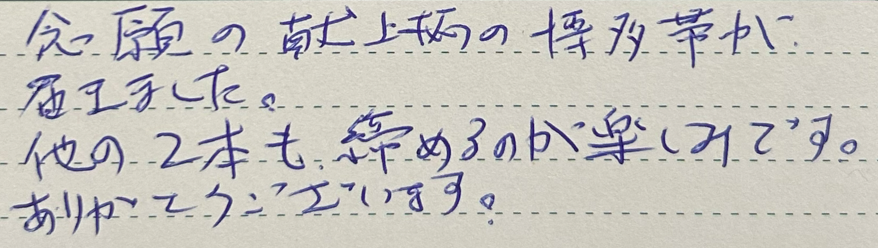 念願の献上柄の博多帯が
届きました。
他の2本も、締めるのが楽しみです。
ありがとうございます。